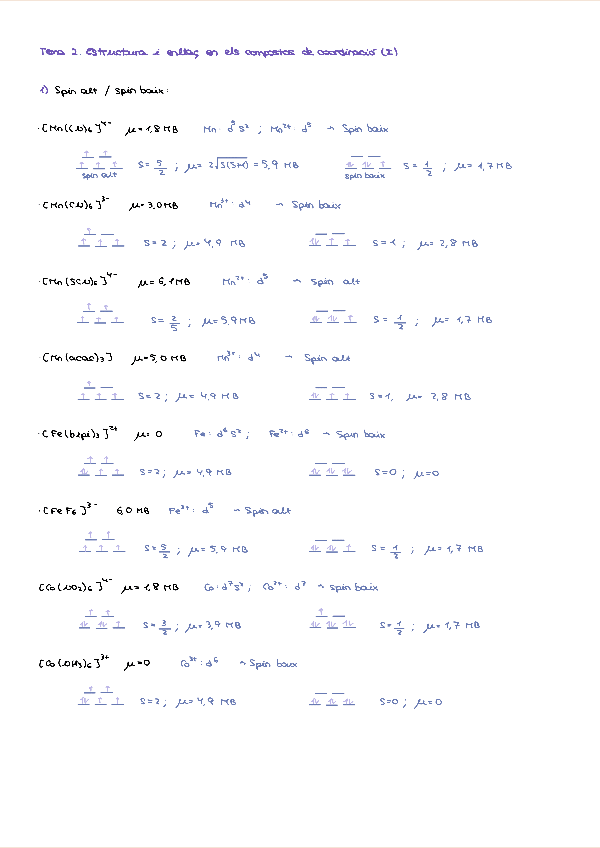 Tema 2. Estructura i enllaç en els compostos de coordinació (I)
1) Spin alt / spin baix:
· [Mn(CN)6]4- μ= 1,8 MB Mn: d5 s2 ; Mn2+: d5 → Spin baix
spin alt S= 5/2 ; μ= 2√S(S+1) = 5,9 MB spin baix S= 1/2 ; μ= 1,7 MB
· [Mn(CN)6]3- μ= 3,0 MB Mn3+: d4 → Spin baix
S=2 ; μ= 4,9 MB S=1 ; μ= 2,8 MB
· [Mn(SCN)6]4- μ= 6,1 MB Mn2+: d5 → Spin alt
S= 2/5 ; μ= 5,9 MB S= 1/2 ; μ= 1,7 MB
· [Mn(acac)3] μ=5,0 MB Mn3+: d4 → Spin alt
S=2 ; μ= 4,9 MB S=1, μ= 2,8 MB
· [Fe(bipi)3]2+ μ= 0 Fe: d6 s2 ; Fe2+: d6 → Spin baix
S=2 ; μ= 4,9 MB S=0 ; μ=0
· [Fe F6]3- 6,0 MB Fe3+: d5 → Spin alt
S= 5/2 ; μ= 5,9 MB S= 1/2 ; μ= 1,7 MB
[Co(NO2)6]4- μ= 1,8 MB Co: d7 s2 ; Co2+: d7 → spin baix
S= 3/2 ; μ= 3,9 MB S= 1/2 ; μ= 1,7 MB
[Co(NH3)6]3+ μ=0 Co3+: d6 → Spin baix
S=2 ; μ= 4,9 MB S=0 ; μ=0